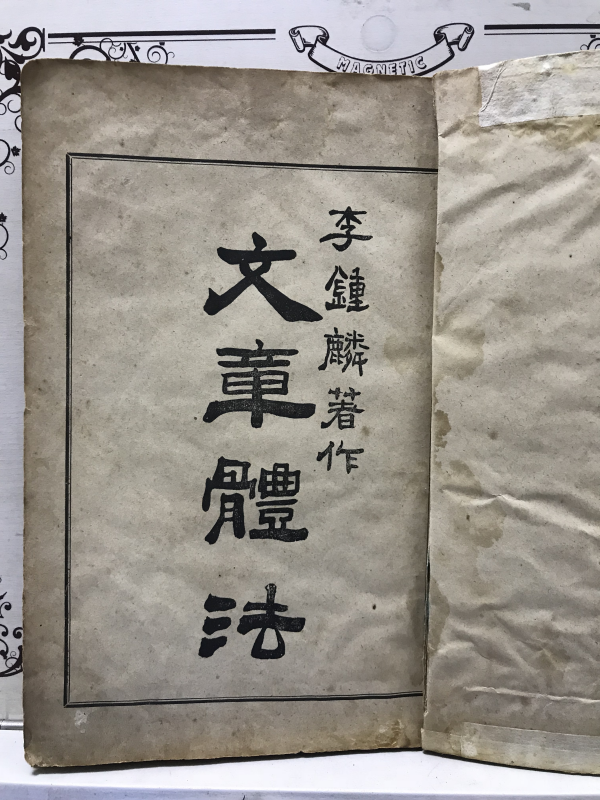 MAGNETIC
李鍾麟著作
文章體法